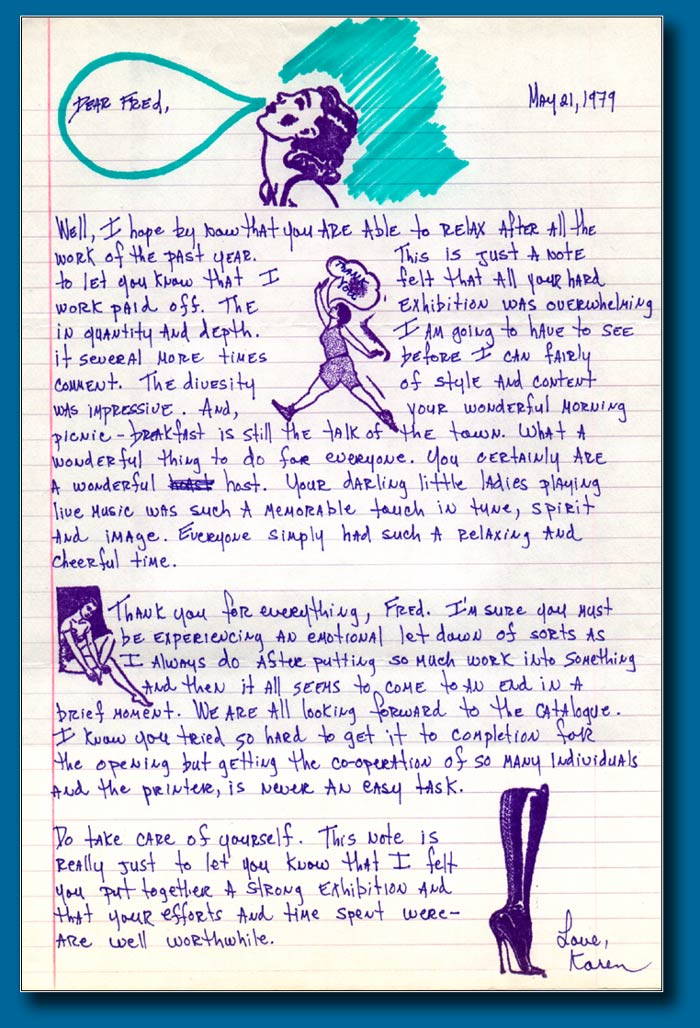 Dear Fred,
May 21, 1979
Well, I hope by now that you are able to relax after all the
work of the past year. This is just a note
to let you know that I felt that all your hard
work paid off. The Exhibition was overwhelming
in quantity and depth. I am going to have to see
it several more times before I can fairly
comment. The divesity of style and content
was impressive. And, your wonderful morning
picnic-breakfast is still the talk of the town. What a
wonderful thing to do for everyone. You certainly are
a wonderful host. Your darling little ladies playing
live music was such a memorable touch in tune, spirit
and image. Everyone simply had such a relaxing and
cheerful time.
Thank You
Thank you for everything, Fred. I'm sure you must
be experiencing an emotional let down of sorts as
I always do after putting so much work into something
and then it all seems to come to an end in a
brief moment. We are all looking forward to the catalogue.
I know you tried so hard to get it to completion for
the opening but getting the co-operation of so many individuals
and the printer, is never an easy task.
Do take care of yourself. This note is
really just to let you know that I felt
you put together a strong exhibition and
that your efforts and time spent were-
are well worthwhile.
Love,
Karen